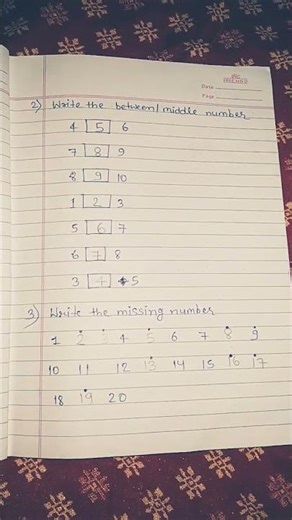 Date
Page
2) Write the between/middle number
4 5 6
7 8 9
8 9 10
1 2 3
5 6 7
6 7 8
3 4 5
3) Write the missing number
1 2 3 4 5 6 7 8 9
10 11 12 13 14 15 16 17
18 19 20